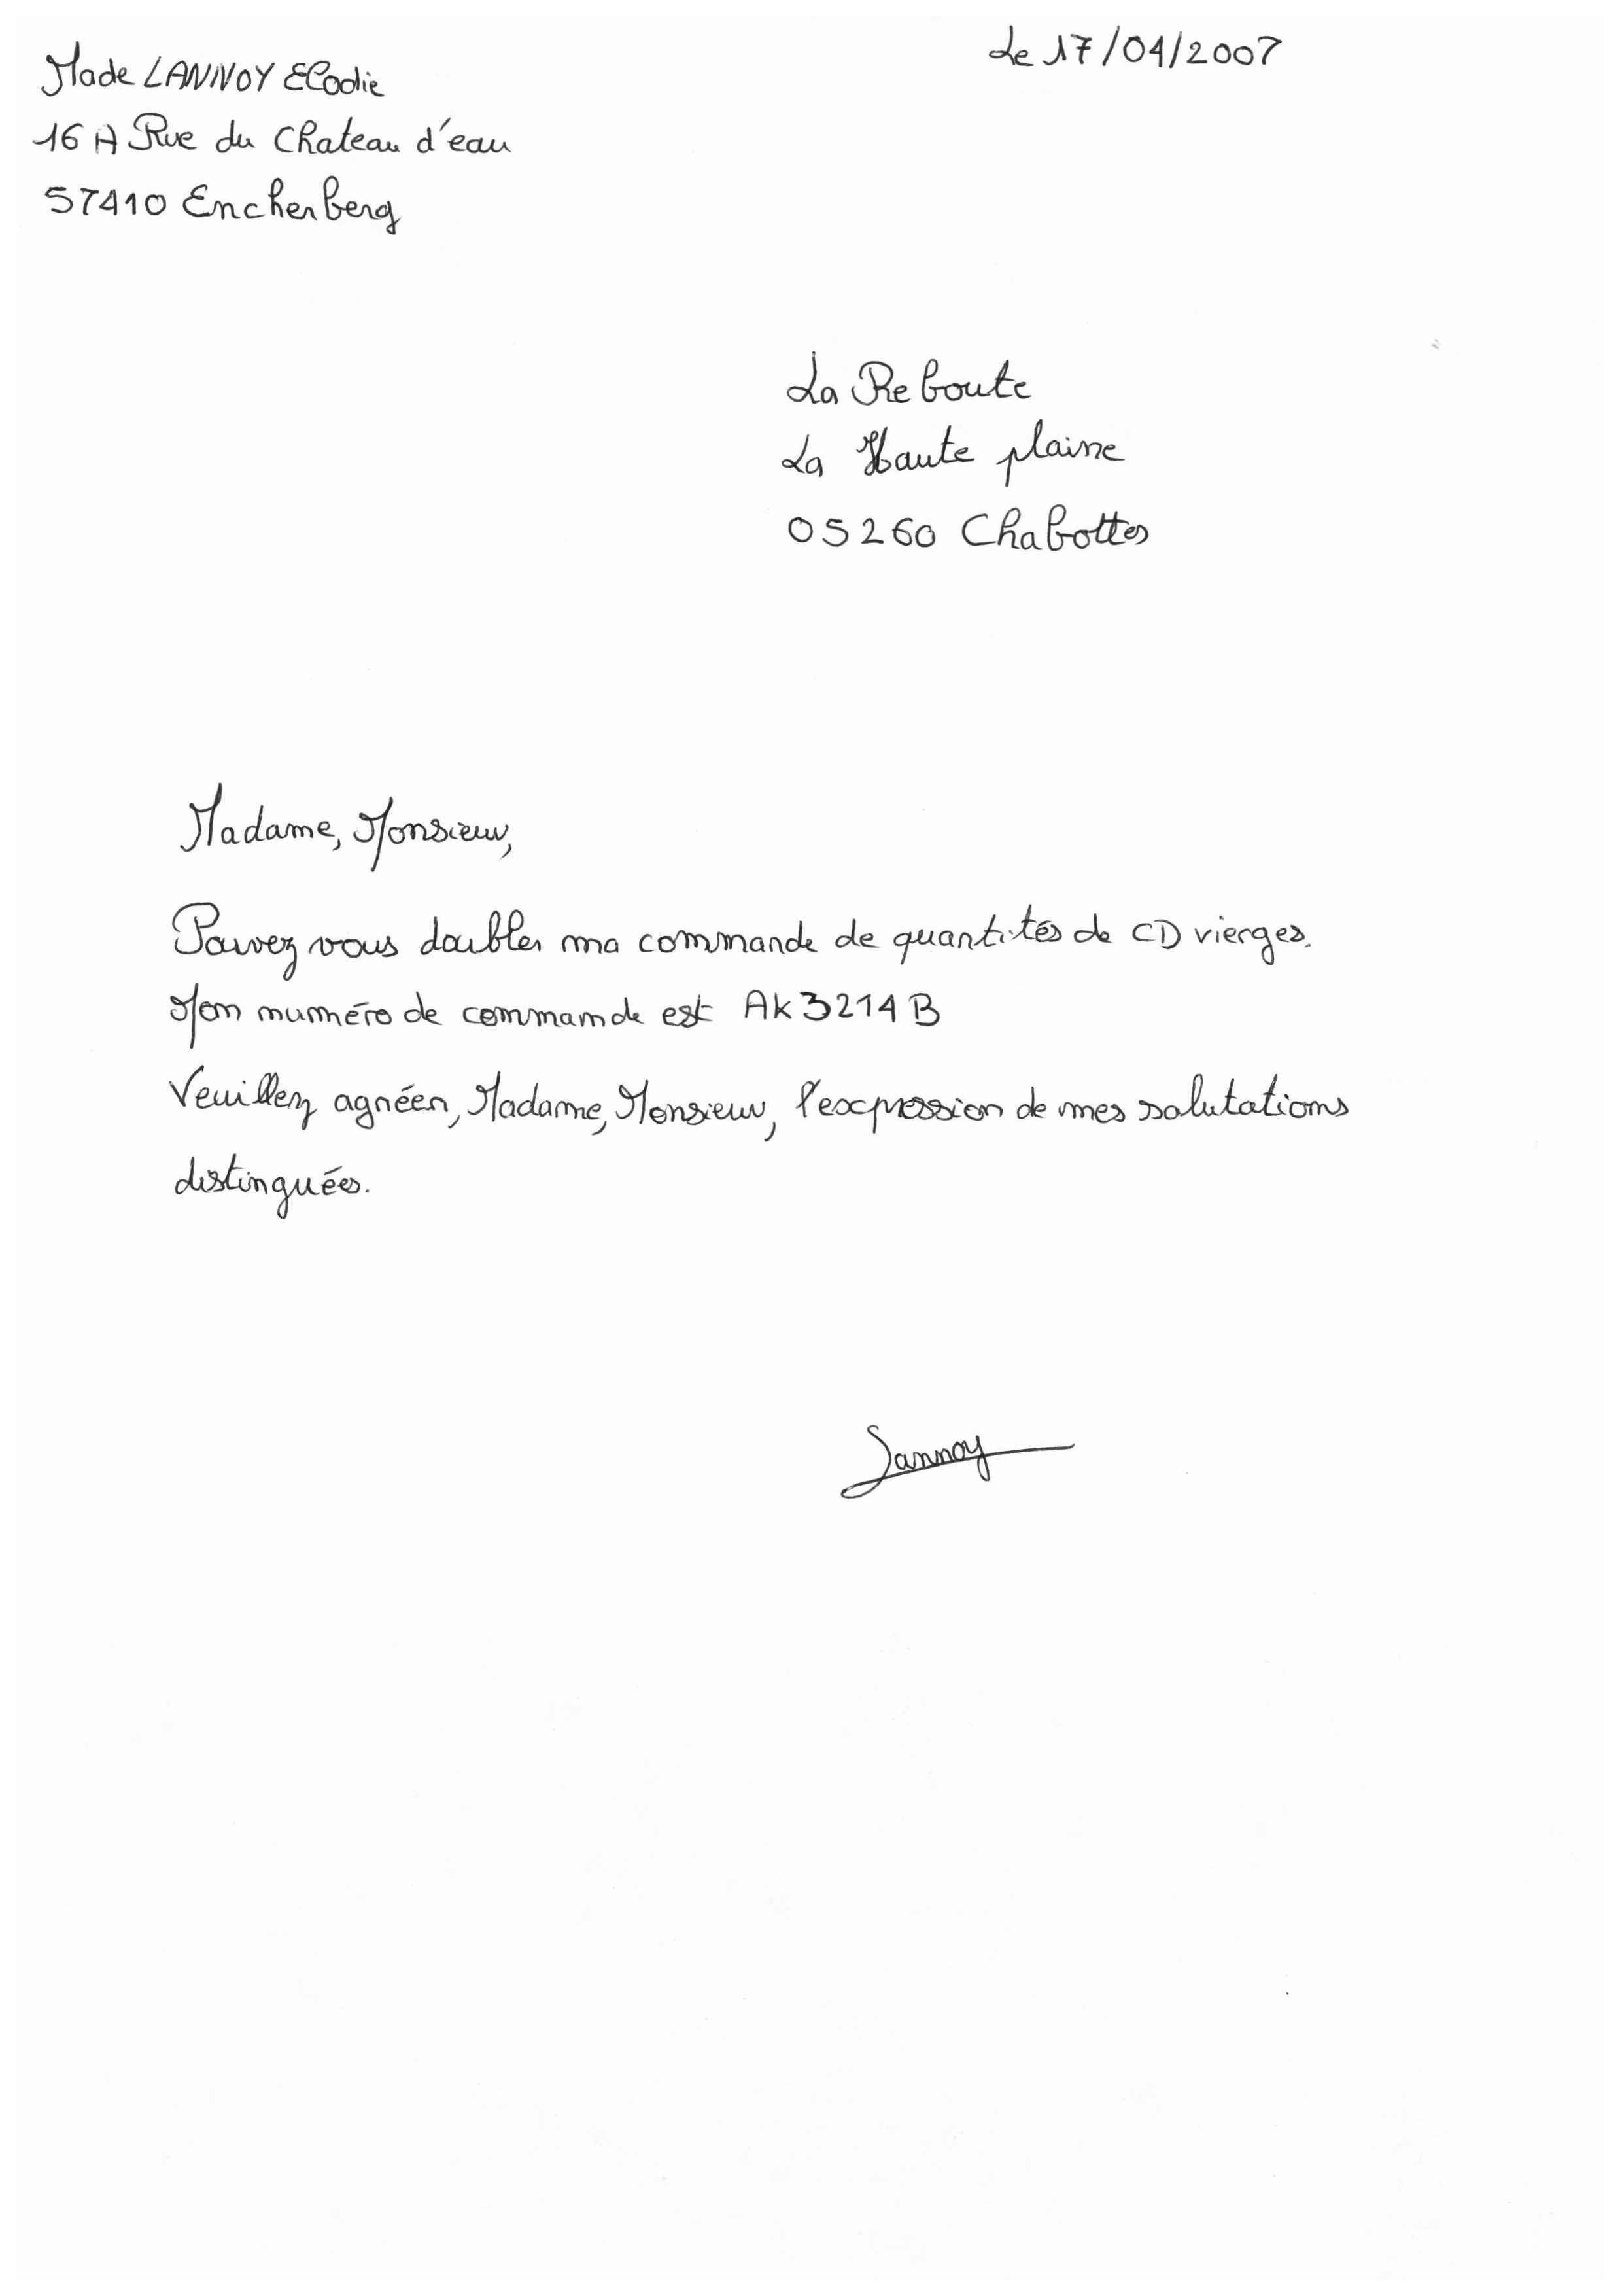 Made LANNOY Elodie
Le 17/04/2007
16 A Rue du Chateau d'eau
57410 Enchenberg
La Reboute
La Haute plaine
05260 Chabottes
Madame, Monsieur,
Pouvez vous doubler ma commande de quantités de CD vierges.
Mon numéro de commande est AK3214B
Veuillez agréer, Madame, Monsieur, l'expression de mes salutations
distinguées.
Lannoy